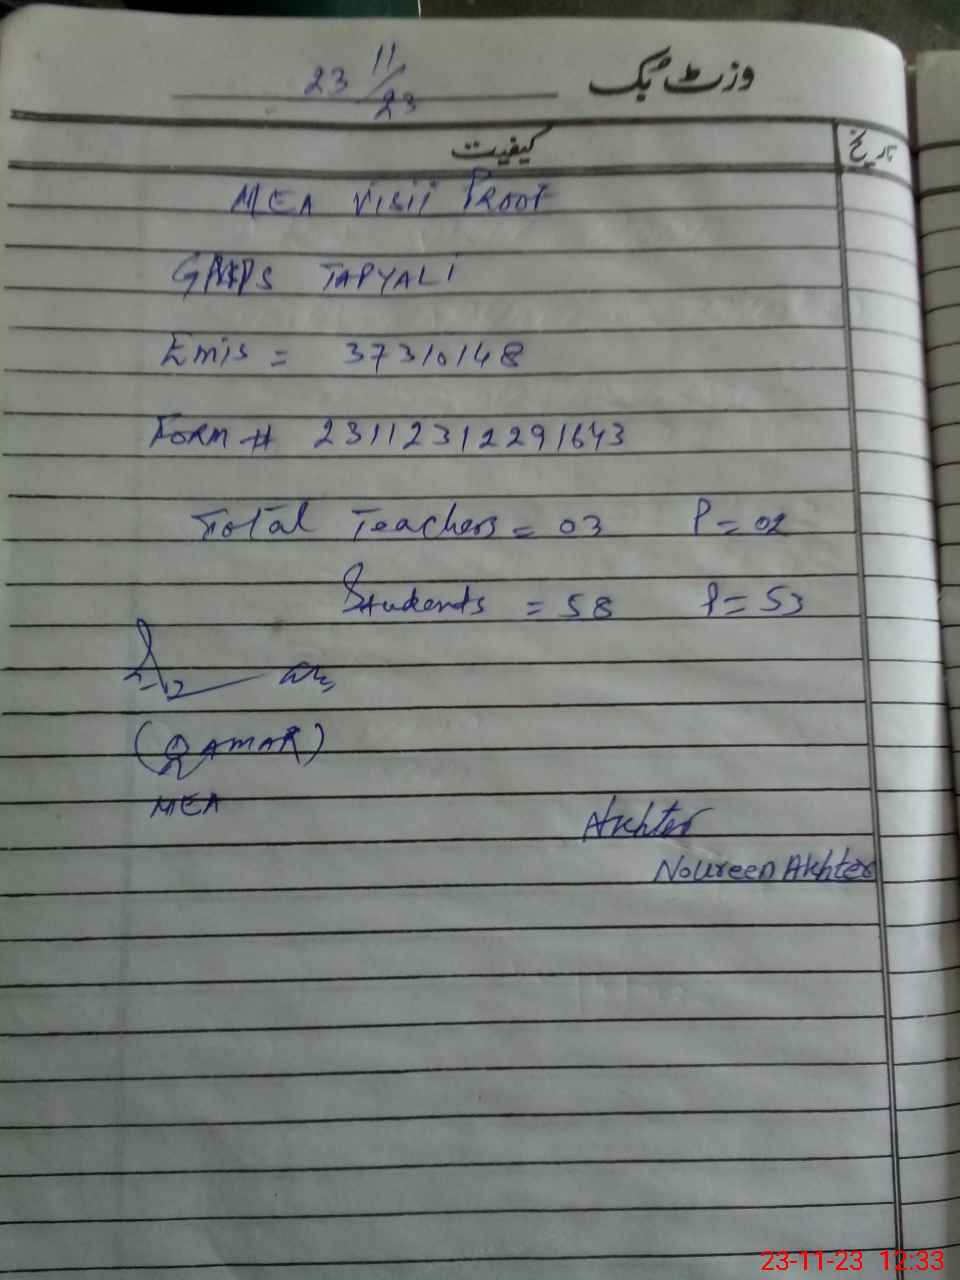 وزٹ بک
23 11/23
کیفیت
تاریخ
MEA Visit Proof
TAPYALI
Emis = 37310148
Form # 23112312291643
Total Teachers = 03 P = 02
Students = 58 P = 53
(QAMAR)
MEA
Akhter
Noureen Akhter
23-11-23 12:33